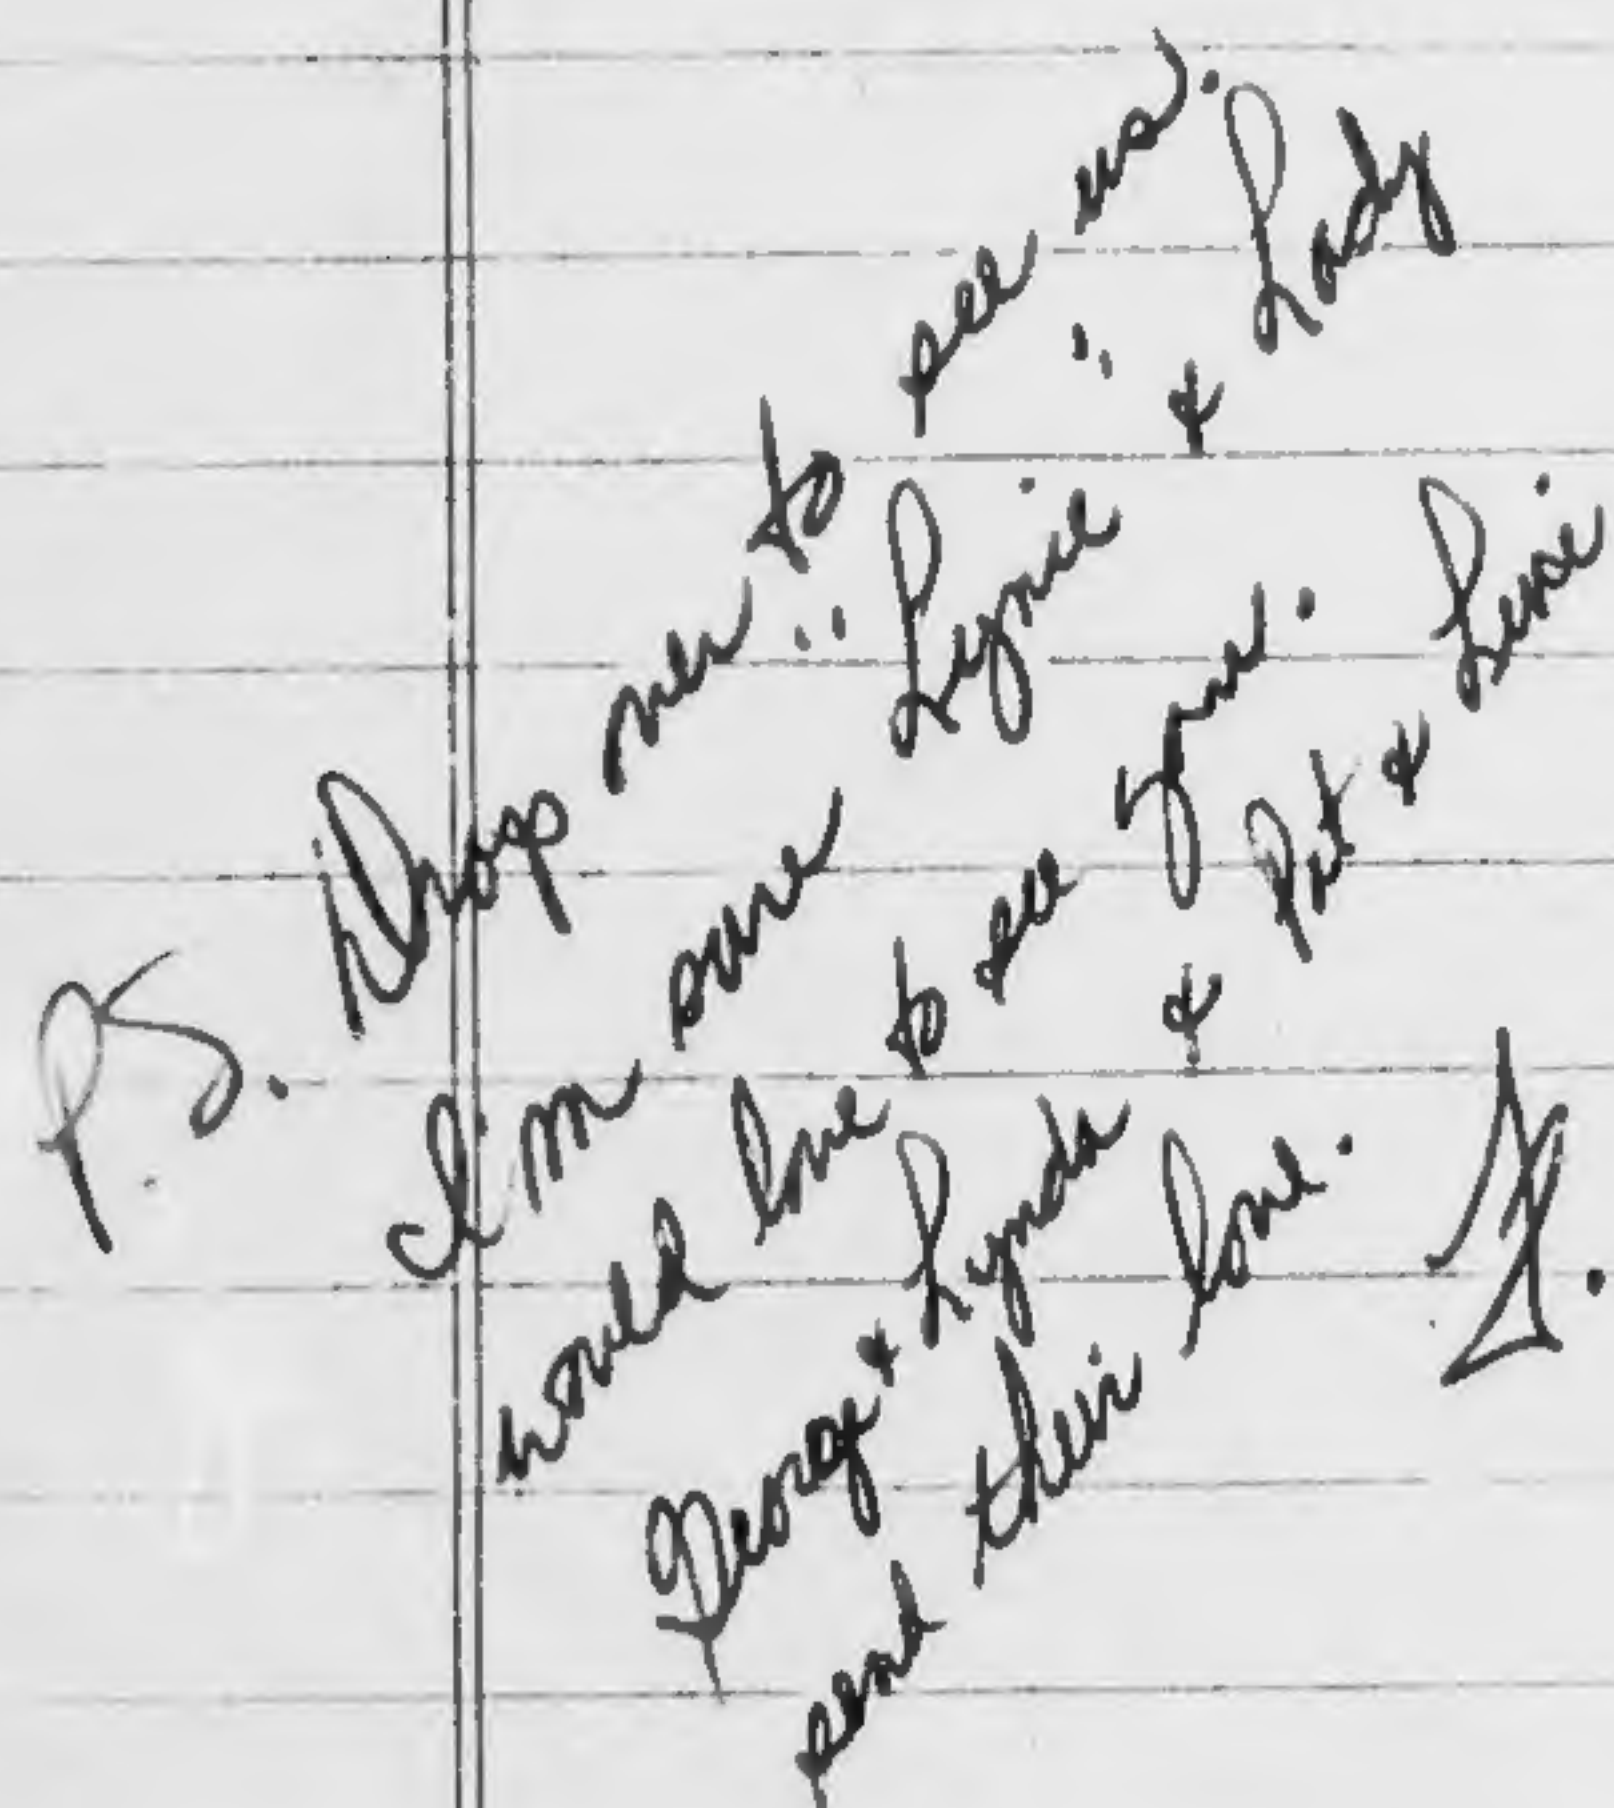 P.S. Drop over to see us.
I'm sure "Lynie" & Lady
would love to see you.
George & Lynda & Pat & Lise
send their love. J.